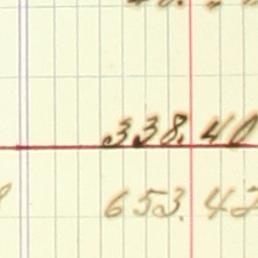 338.40
653.42